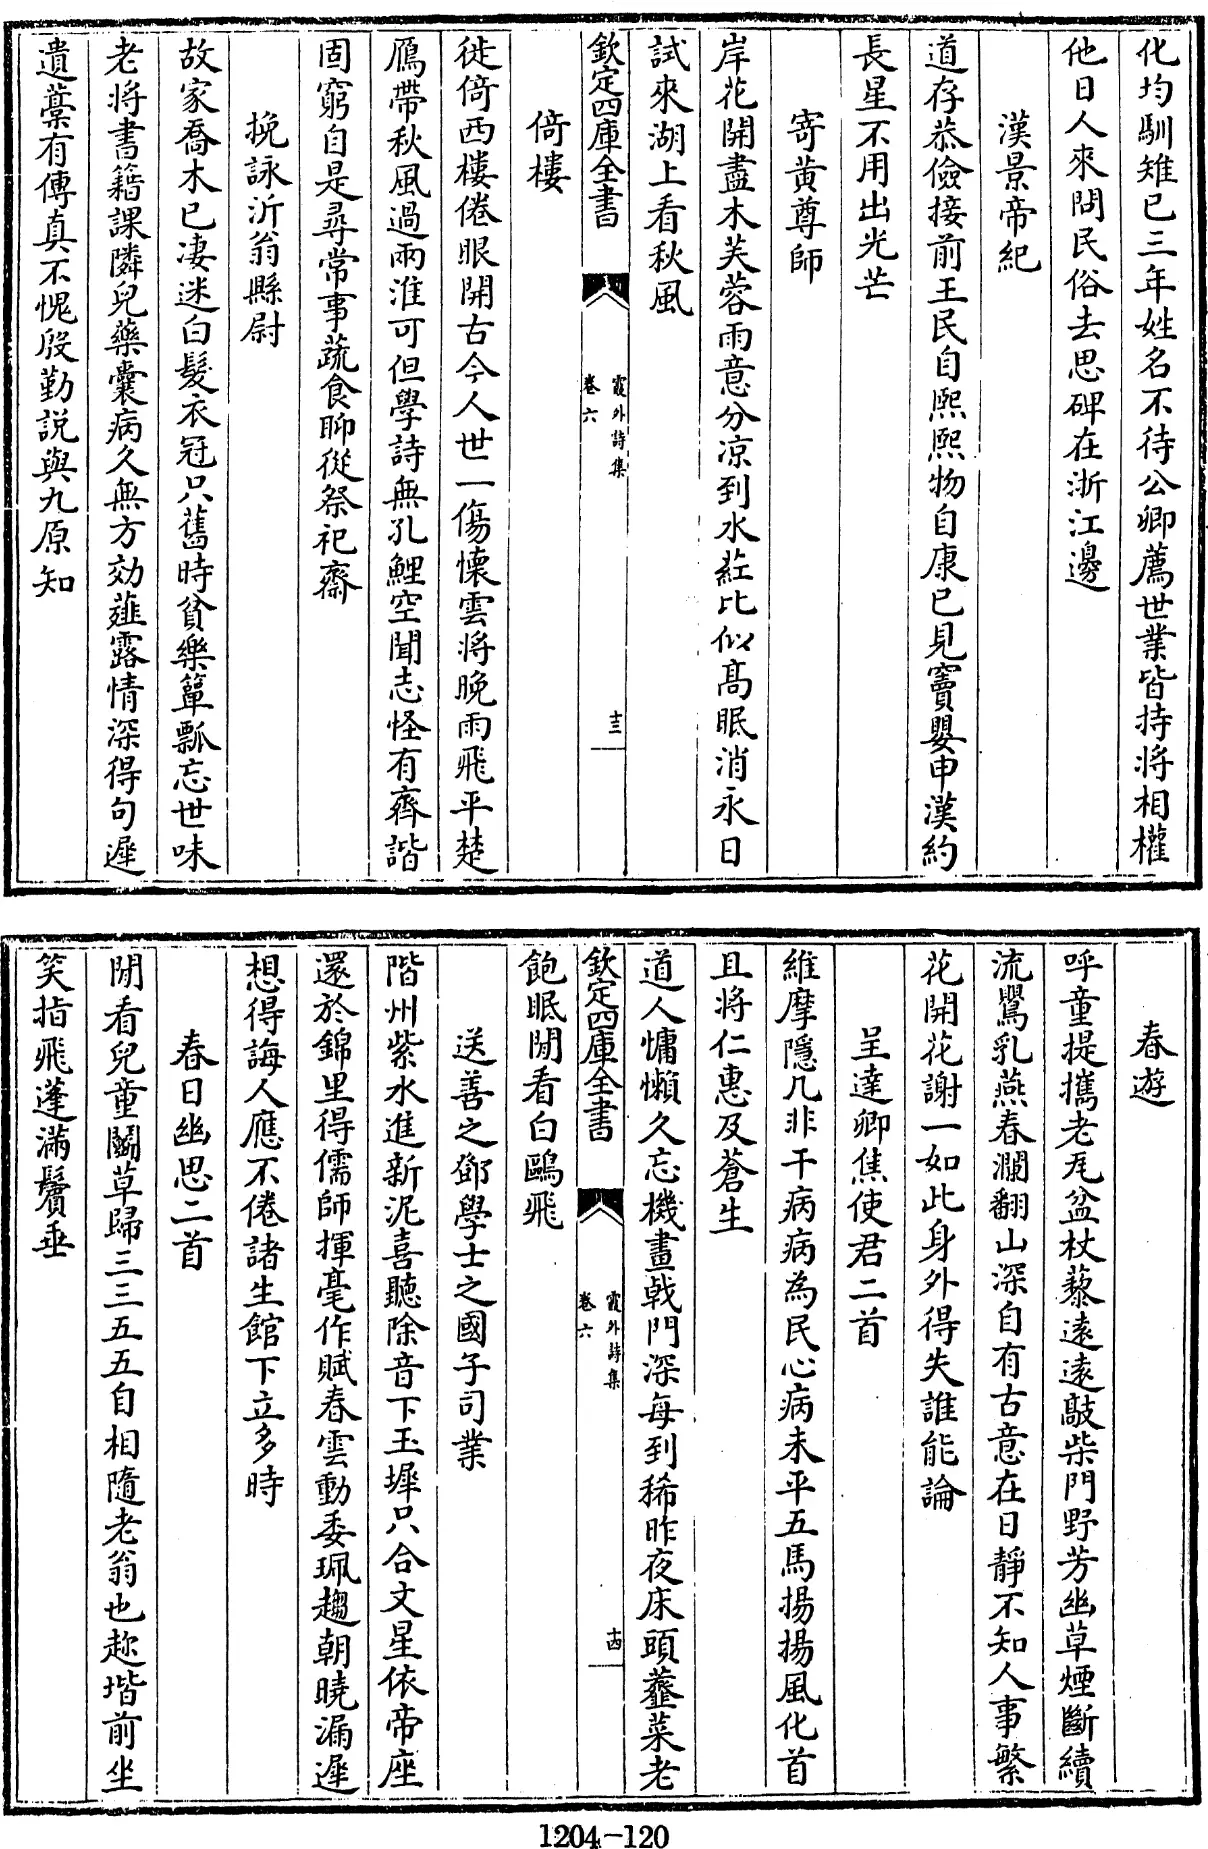 化均馴雉已三年姓名不待公卿薦世業皆持將相權
他日人來問民俗去思碑在浙江邊
漢景帝紀
道存恭儉接前王民自熈熈物自康已見竇嬰申漢約
長星不用出光芒
寄黄尊師
岸花開盡木芙蓉雨意分凉到水葒比似髙眠消永日
試來湖上看秋風
欽定四庫全書
霞外詩集
卷六
十三
倚樓
徙倚西樓倦眼開古今人世一傷懐雲將晚雨飛平楚
鴈帶秋風過兩淮可但學詩無孔鯉空聞志怪有齊諧
固窮自是尋常事蔬食聊從祭祀齋
挽詠沂翁縣尉
故家喬木已凄迷白髮衣冠只舊時貧樂簞瓢忘世味
老將書籍課隣兒藥囊病久無方効薤露情深得句遲
遺藁有傳真不愧殷勤説與九原知
春遊
呼童提攜老瓦盆杖藜遠遠敲柴門野芳幽草煙斷續
流鶯乳燕春瀾翻山深自有古意在日靜不知人事繁
花開花謝一如此身外得失誰能論
呈達卿焦使君二首
維摩隱几非干病病為民心病未平五馬揚揚風化首
且將仁惠及蒼生
道人慵懶久忘機畫戟門深每到稀昨夜床頭虀菜老
欽定四庫全書
霞外詩集
卷六
十四
飽眠閒看白鷗飛
送善之鄧學士之國子司業
階州紫水進新泥喜聽除音下玉墀只合文星依帝座
還於錦里得儒師揮毫作賦春雲動委珮趨朝曉漏遲
想得誨人應不倦諸生館下立多時
春日幽思二首
閒看兒童鬬草歸三三五五自相隨老翁也趂堦前坐
笑指飛蓬滿鬢垂
1204-120